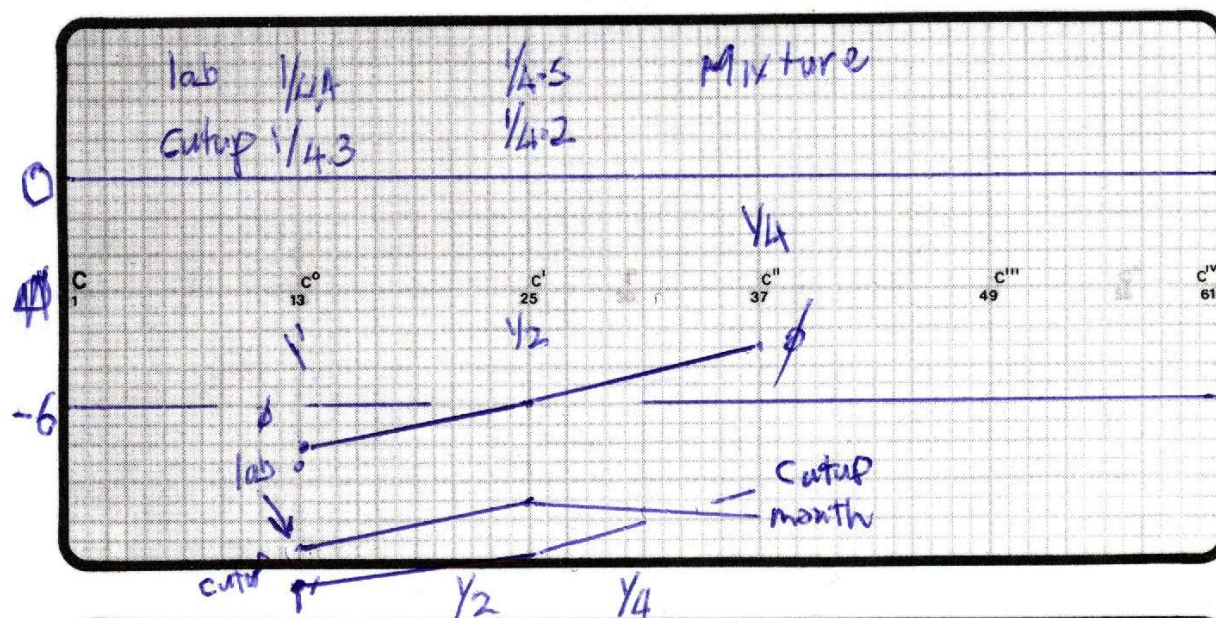 lab 1/4.4 1/4.5 Mixture
cutup 1/4.3 1/4.2
0
1/4
C C° C' C'' C''' C'ⱽ
1 13 25 37 49 61
1' 1/2 ϕ
-6 ϕ
lab
Cutup
mouth
cutup
1' 1/2 1/4